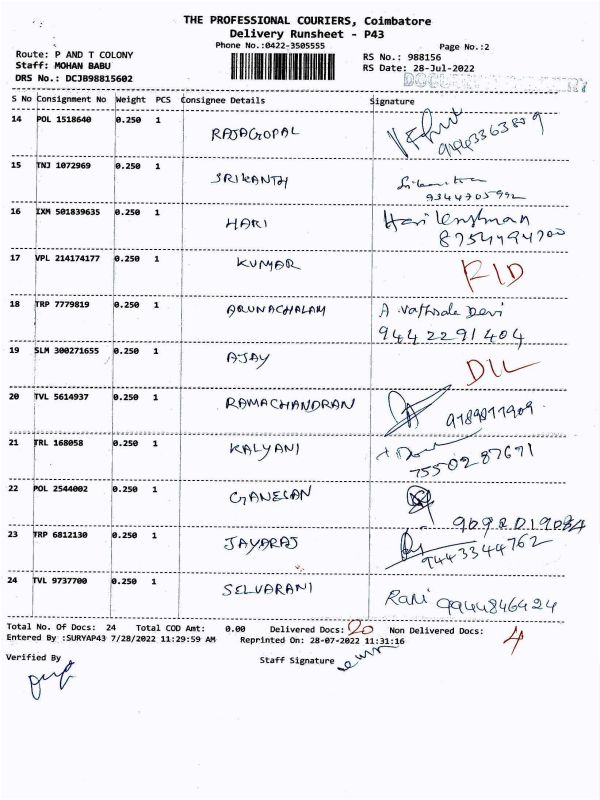 THE PROFESSIONAL COURIERS, Coimbatore
Delivery Runsheet - P43
Phone No.:0422-3505555
Page No.:2
Route: P AND T COLONY
Staff: MOHAN BABU
DRS No.: DCJB98815602
RS No.: 988156
RS Date: 28-Jul-2022
S No Consignment No Weight PCS Consignee Details Signature
14 POL 1518640 0.250 1 RAJAGOPAL
15 TNJ 1072969 0.250 1 SRIKANTH
9344705992
16 IXM 501839635 0.250 1 HARI Hari
17 VPL 214174177 0.250 1 KUMAR
18 TRP 7779819 0.250 1 ARUNACHALAM A. Devi
9442291404
19 SLM 300271655 0.250 1 AJAY
20 TVL 5614937 0.250 1 RAMACHANDRAN
21 TRL 168058 0.250 1 KALYANI
7550287671
22 POL 2544002 0.250 1 GANESAN
23 TRP 6812130 0.250 1 JAYARAJ
9443344762
24 TVL 9737700 0.250 1 SELVARANI Rani 9944846424
Total No. Of Docs: 24 Total COD Amt: 0.00 Delivered Docs: 20 Non Delivered Docs: 4
Entered By :SURYAP43 7/28/2022 11:29:59 AM Reprinted On: 28-07-2022 11:31:16
Verified By
Staff Signature